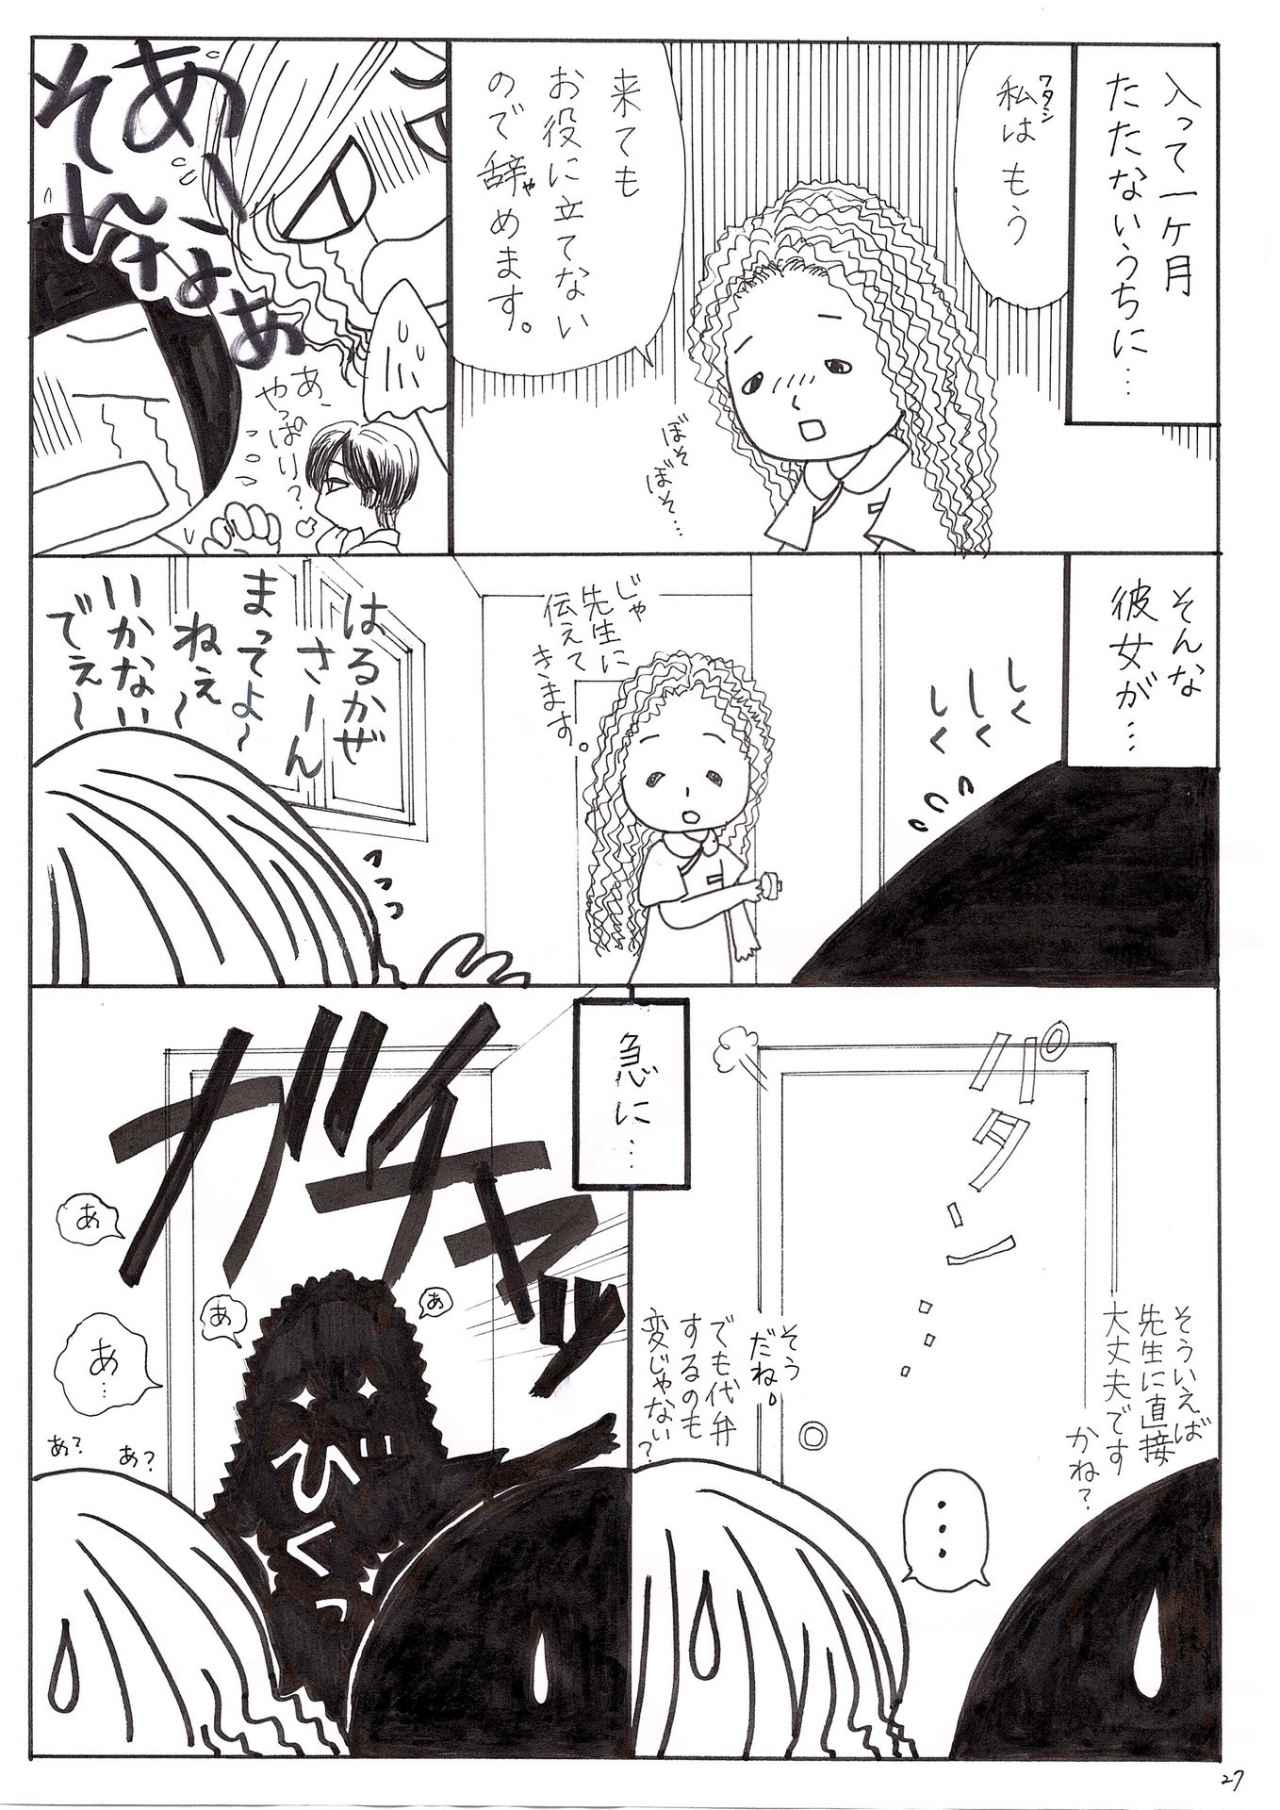 入って一ケ月
たたないうちに…
ワタシ
私はもう
来ても
お役に立てない
ので辞めます。
や
ぼそ
ぼそ…
あ、
そんなぁ
あ、
やっぱり?
そんな
彼女が…
しく
しく
しく
じゃ
先生に
伝えて
きます。
はるかぜ
さーん
まってよ~
ねぇ~
いかない
でぇ~
パタン
そういえば
先生に直接
大丈夫です
かね?
…
そう
だね。
でも代弁
するのも
変じゃない?
急に…
ガチャッ
ひくっ
あ
あ
あ
あ…
あ?
あ?
27